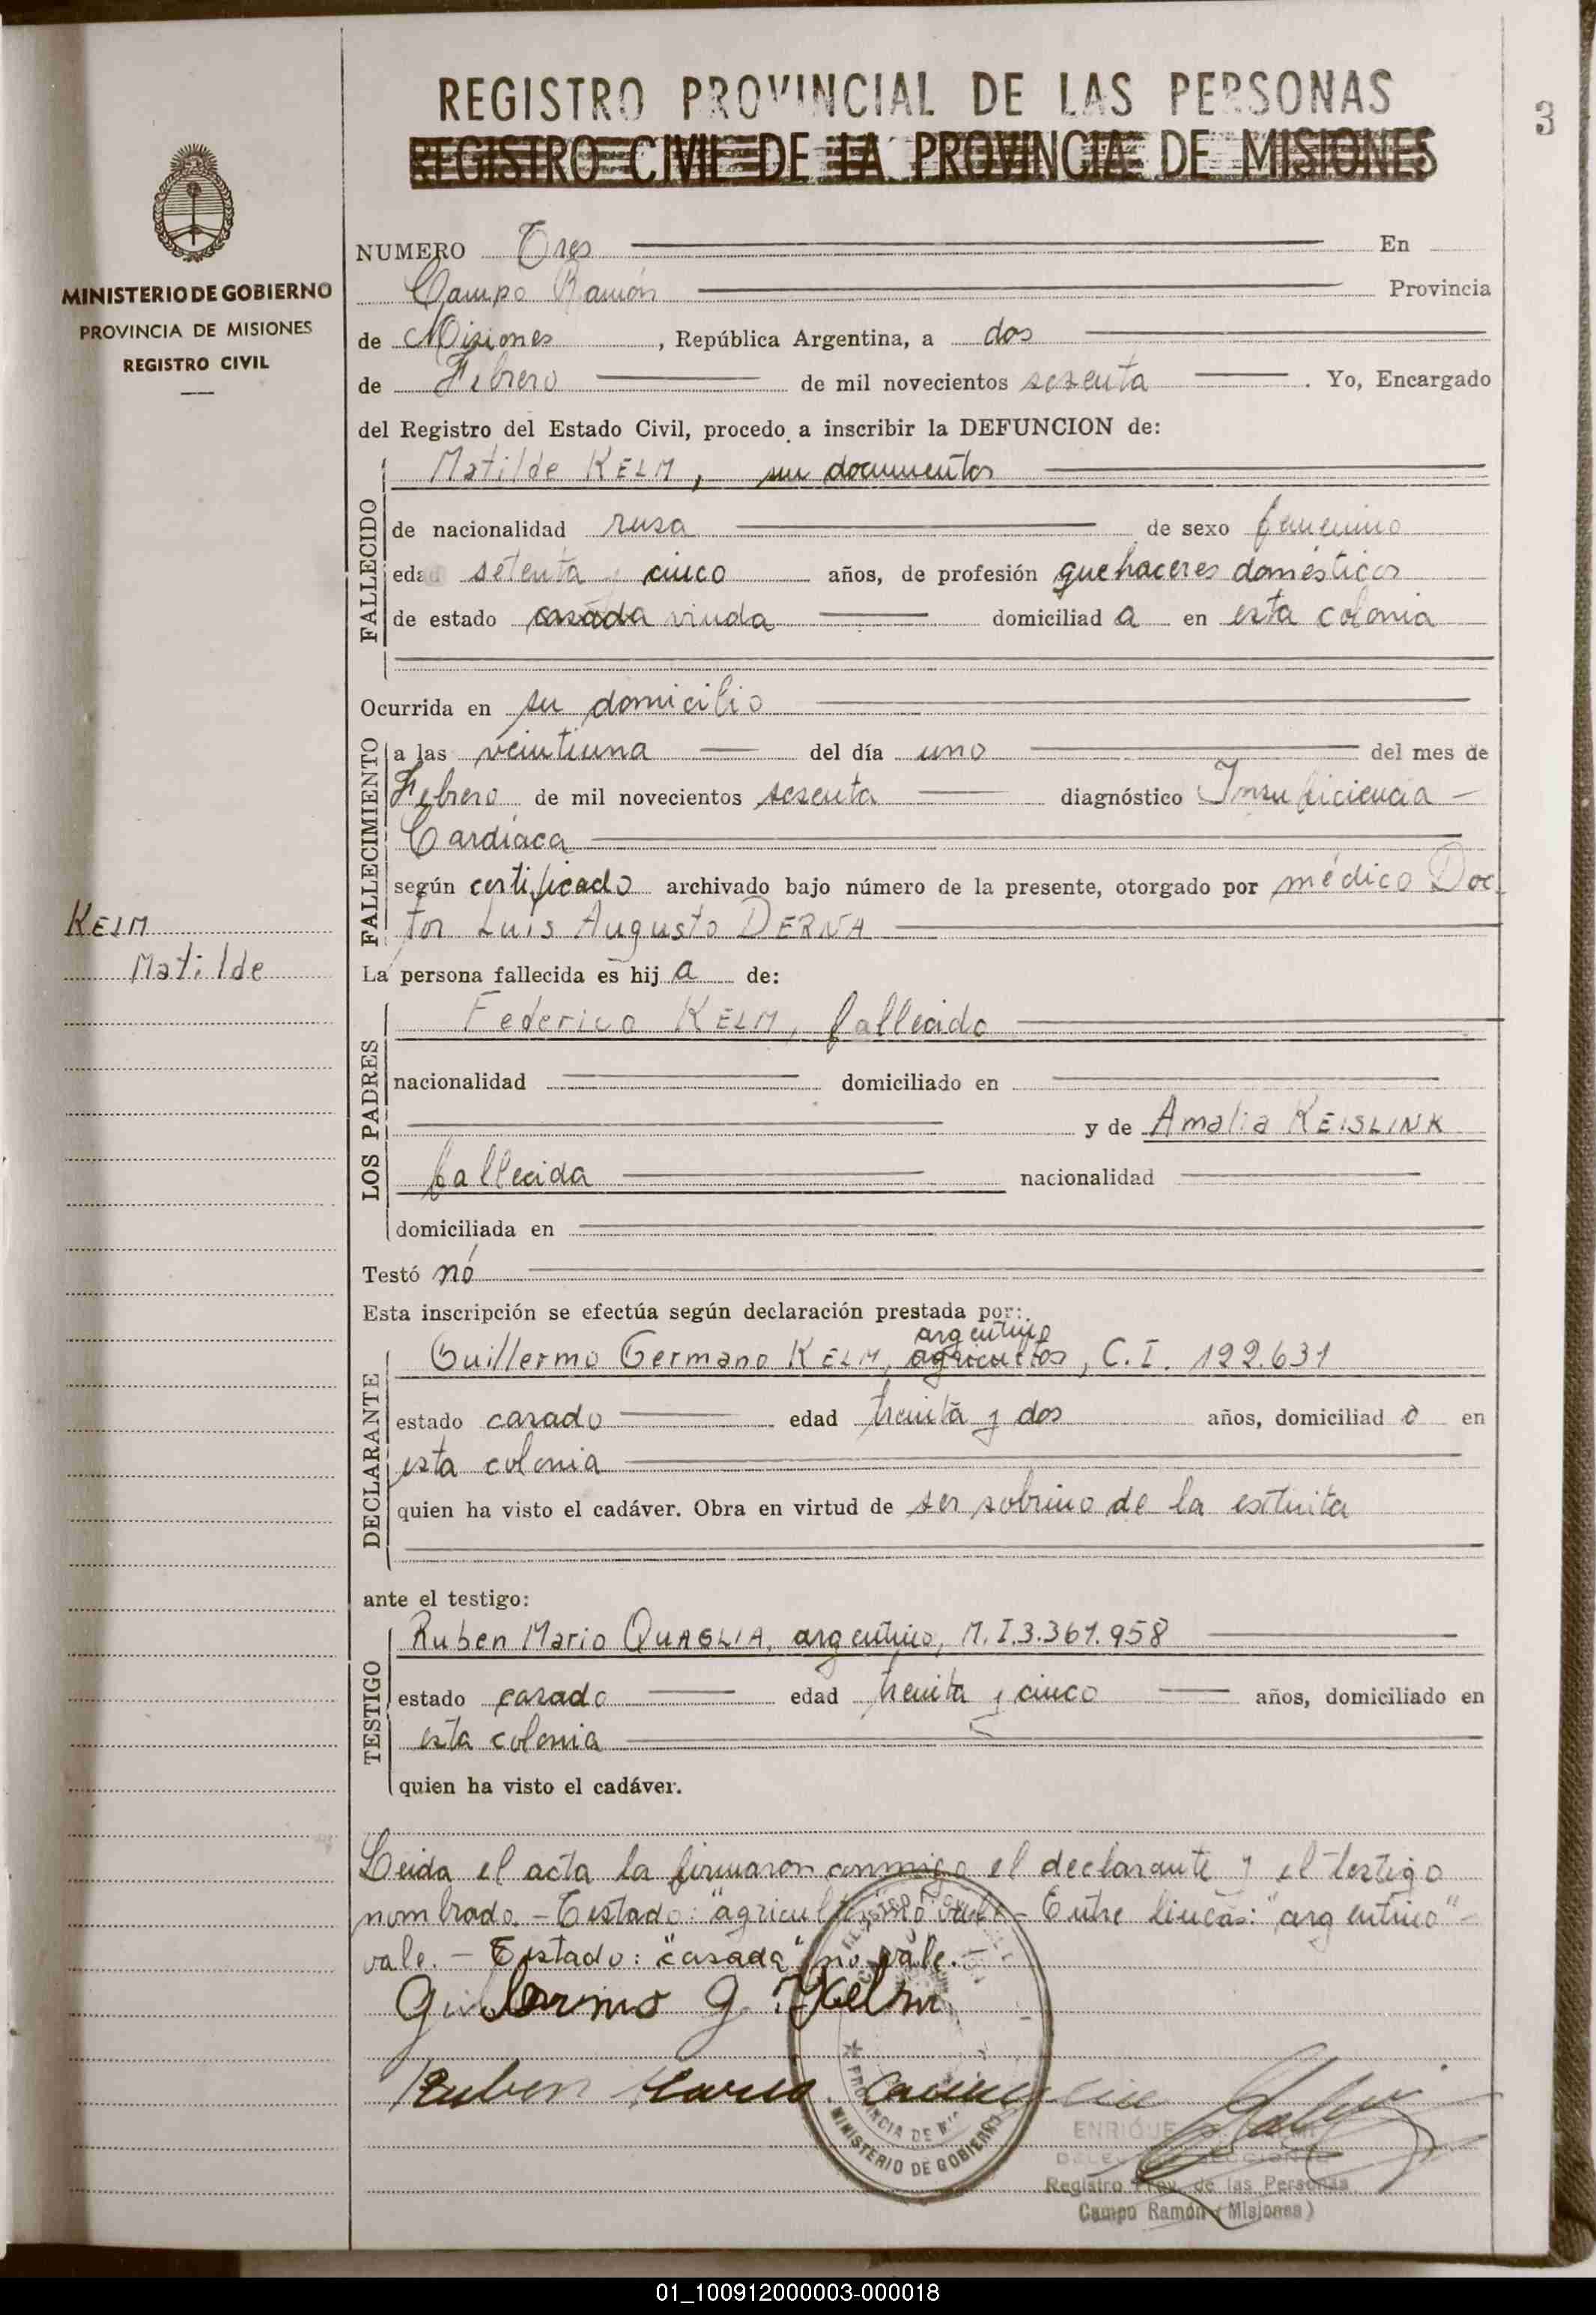 REGISTRO PROVINCIAL DE LAS PERSONAS
3
REGISTRO CIVIL DE LA PROVINCIA DE MISIONES
MINISTERIO DE GOBIERNO
PROVINCIA DE MISIONES
REGISTRO CIVIL
NUMERO Tres En
Campo Ramón Provincia
de Misiones, República Argentina, a dos
de Febrero de mil novecientos sesenta. Yo, Encargado
del Registro del Estado Civil, procedo a inscribir la DEFUNCION de:
FALLECIDO
Matilde KELM, sin documentos
de nacionalidad rusa de sexo femenino
edad setenta y cinco años, de profesión quehaceres domésticos
de estado casada viuda domiciliad a en esta colonia
Ocurrida en su domicilio
FALLECIMIENTO
a las veintiuna del día uno del mes de
Febrero de mil novecientos sesenta diagnóstico Insuficiencia
Cardíaca
según certificado archivado bajo número de la presente, otorgado por médico Doc
tor Luis Augusto DERNA
KELM
Matilde
La persona fallecida es hij a de:
LOS PADRES
Federico KELM, fallecido
nacionalidad domiciliado en
y de Amalia KEISLINK
fallecida nacionalidad
domiciliada en
Testó nó
Esta inscripción se efectúa según declaración prestada por:
DECLARANTE
argentino
Guillermo Germano KELM, agricultor, C.I. 122.631
estado casado edad treinta y dos años, domiciliad o en
esta colonia
quien ha visto el cadáver. Obra en virtud de ser sobrino de la extinta
ante el testigo:
TESTIGO
Ruben Mario QUAGLIA, argentino, M.I.3.367.958
estado casado edad treinta y cinco años, domiciliado en
esta colonia
quien ha visto el cadáver.
Leida el acta la firmaron conmigo el declarante y el testigo
nombrado.- Testado: "agricultor" no vale- Entre lineas: "argentino"-
vale.- Testado: "casada" no vale.-
Guillermo G. Kelm
Ruben Mario
PROVINCIA DE
MINISTERIO DE GOBIERNO
ENRIQUE
Registro Prov. de las Personas
Campo Ramón (Misiones)
01_100912000003-000018